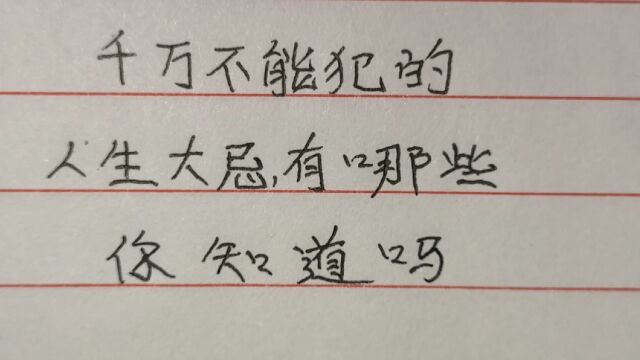 千万不能犯的
人生大忌,有哪些
你知道吗